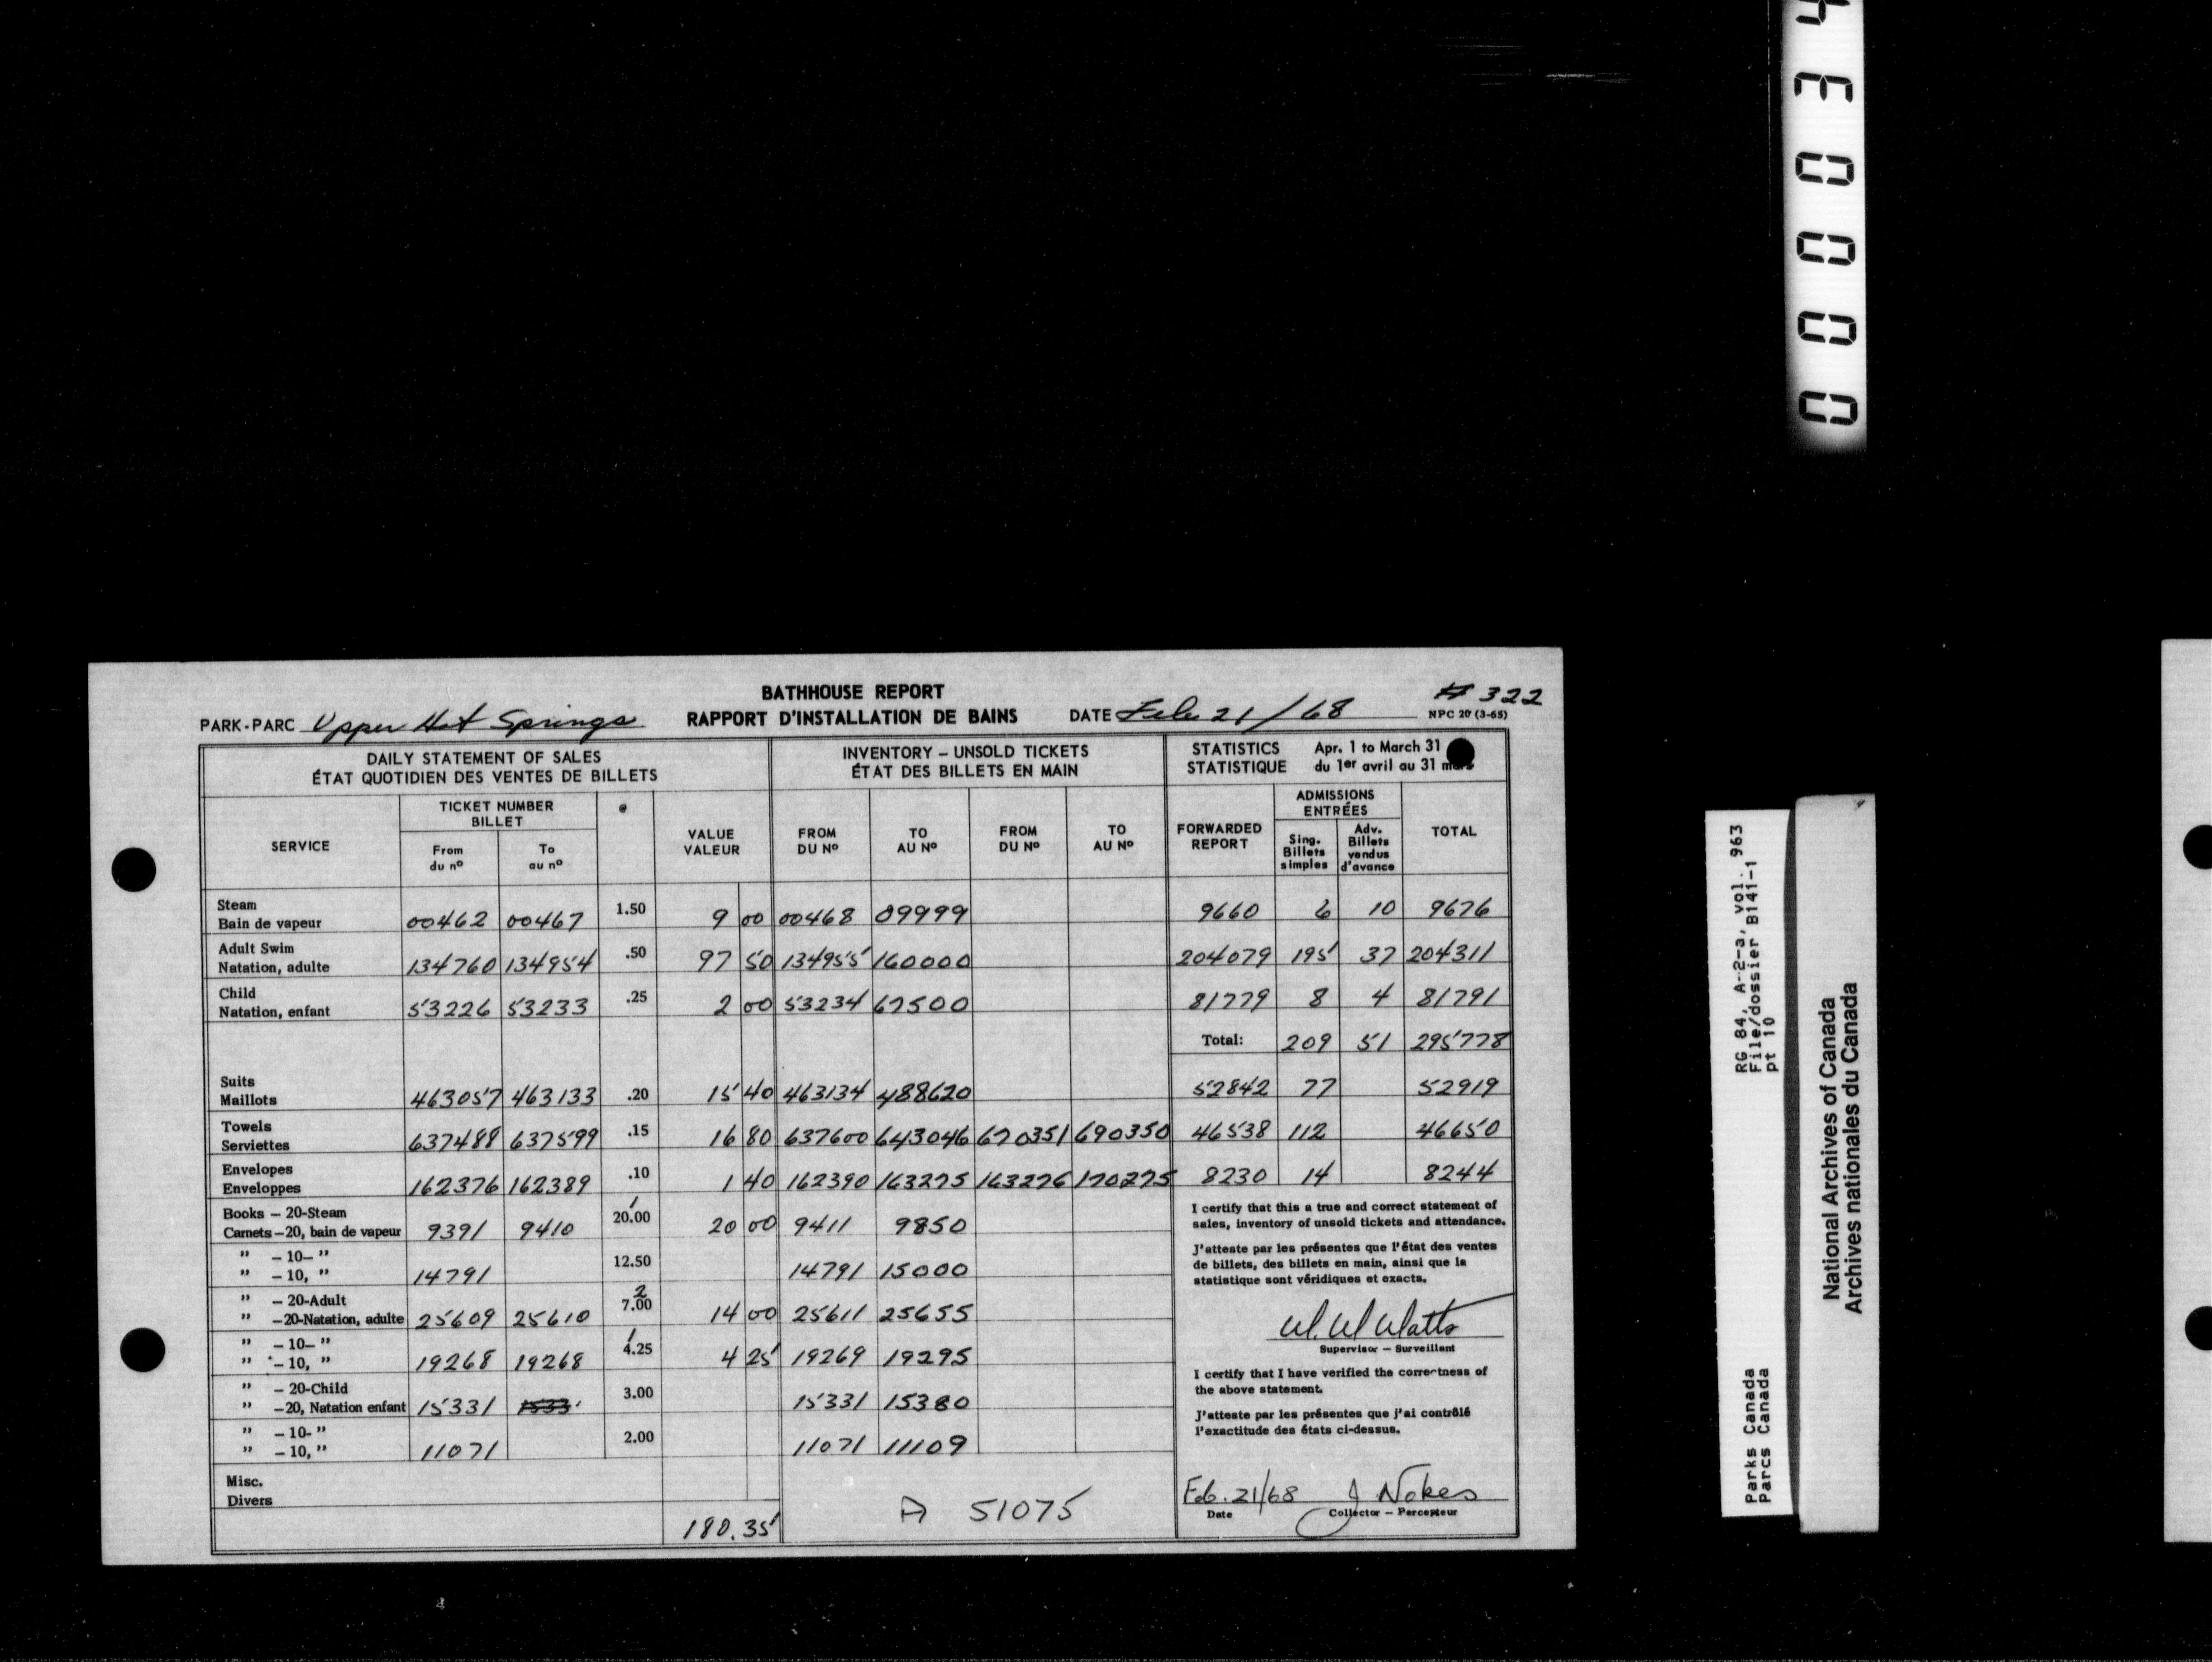 BATHHOUSE REPORT
# 322
PARK-PARC Upper Hot Springs RAPPORT D'INSTALLATION DE BAINS DATE Feb 21/68 NPC 20 (3-65)
DAILY STATEMENT OF SALES
ÉTAT QUOTIDIEN DES VENTES DE BILLETS
INVENTORY – UNSOLD TICKETS
ÉTAT DES BILLETS EN MAIN
STATISTICS Apr. 1 to March 31
STATISTIQUE du 1er avril au 31 mars
SERVICE
TICKET NUMBER
BILLET
From
du nº
To
au nº
@
VALUE
VALEUR
FROM
DU Nº
TO
AU Nº
FROM
DU Nº
TO
AU Nº
FORWARDED
REPORT
ADMISSIONS
ENTRÉES
Sing.
Billets
simples
Adv.
Billets
vendus
d'avance
TOTAL
Steam
Bain de vapeur 00462 00467 1.50 9 00 00468 09999 9660 6 10 9676
Adult Swim
Natation, adulte 134760 134954 .50 97 50 134955 160000 204079 195 37 204311
Child
Natation, enfant 53226 53233 .25 2 00 53234 67500 81779 8 4 81791
Total: 209 51 295778
Suits
Maillots 463057 463133 .20 15 40 463134 488620 52842 77 52919
Towels
Serviettes 637488 637599 .15 16 80 637600 643046 670351 690350 46538 112 46650
Envelopes
Enveloppes 162376 162389 .10 1 40 162390 163275 163276 170275 8230 14 8244
Books – 20-Steam 1
Carnets – 20, bain de vapeur 9391 9410 20.00 20 00 9411 9850
" – 10– "
" – 10, " 14791 12.50 14791 15000
" – 20-Adult 2
" –20-Natation, adulte 25609 25610 7.00 14 00 25611 25655
" – 10– " 1
" – 10, " 19268 19268 4.25 4 25 19269 19295
" – 20-Child
" –20, Natation enfant 15331 1533 3.00 15331 15380
" – 10- "
" – 10, " 11071 2.00 11071 11109
Misc.
Divers
180.35
A 51075
I certify that this a true and correct statement of
sales, inventory of unsold tickets and attendance.
J'atteste par les présentes que l'état des ventes
de billets, des billets en main, ainsi que la
statistique sont véridiques et exacts.
W. W Watts
Supervisor – Surveillant
I certify that I have verified the correctness of
the above statement.
J'atteste par les présentes que j'ai contrôlé
l'exactitude des états ci-dessus.
Feb. 21/68 J Nokes
Date Collector – Percepteur
0 0 0 0 3 4
RG 84, A-2-a, vol. 963
File/dossier B141-1
pt 10
Parks Canada
Parcs Canada
National Archives of Canada
Archives nationales du Canada